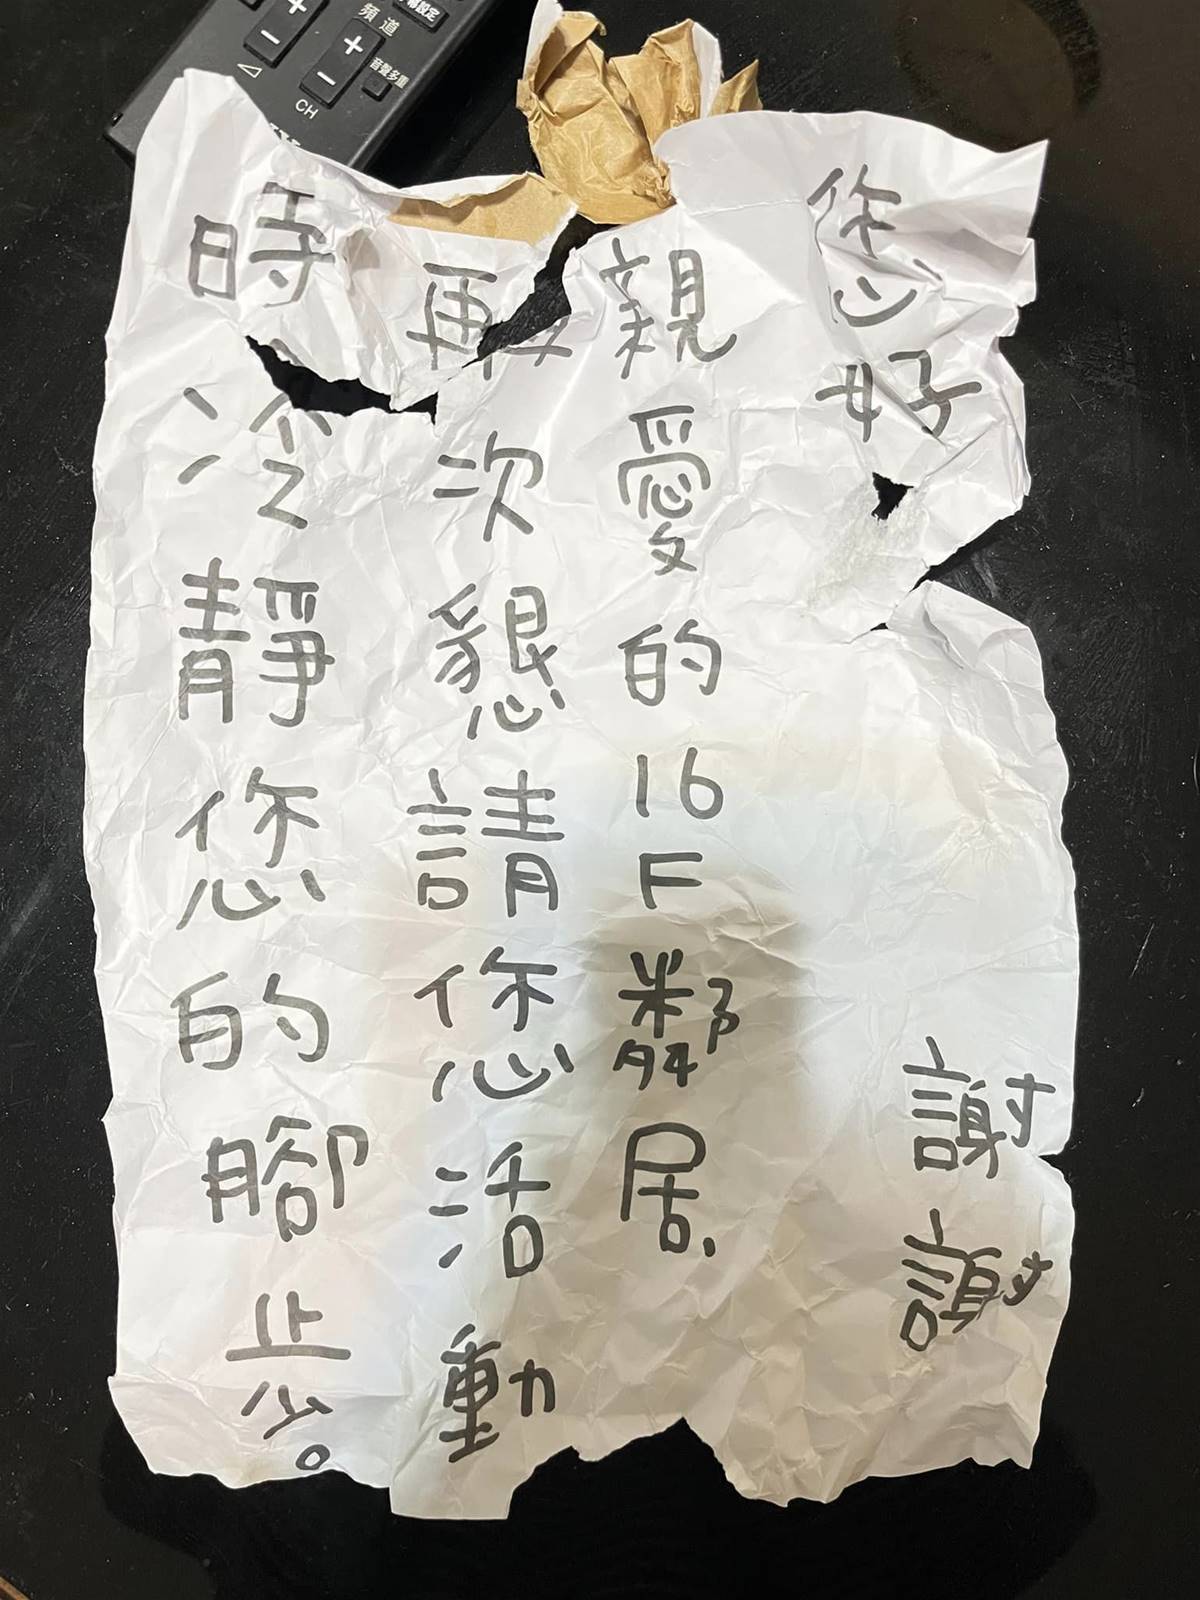 您好
謝謝
親愛的16F鄰居,
再次懇請您活動
時冷靜您的腳步。
設定
頻道
+
-
+
-
CH
音聲多重